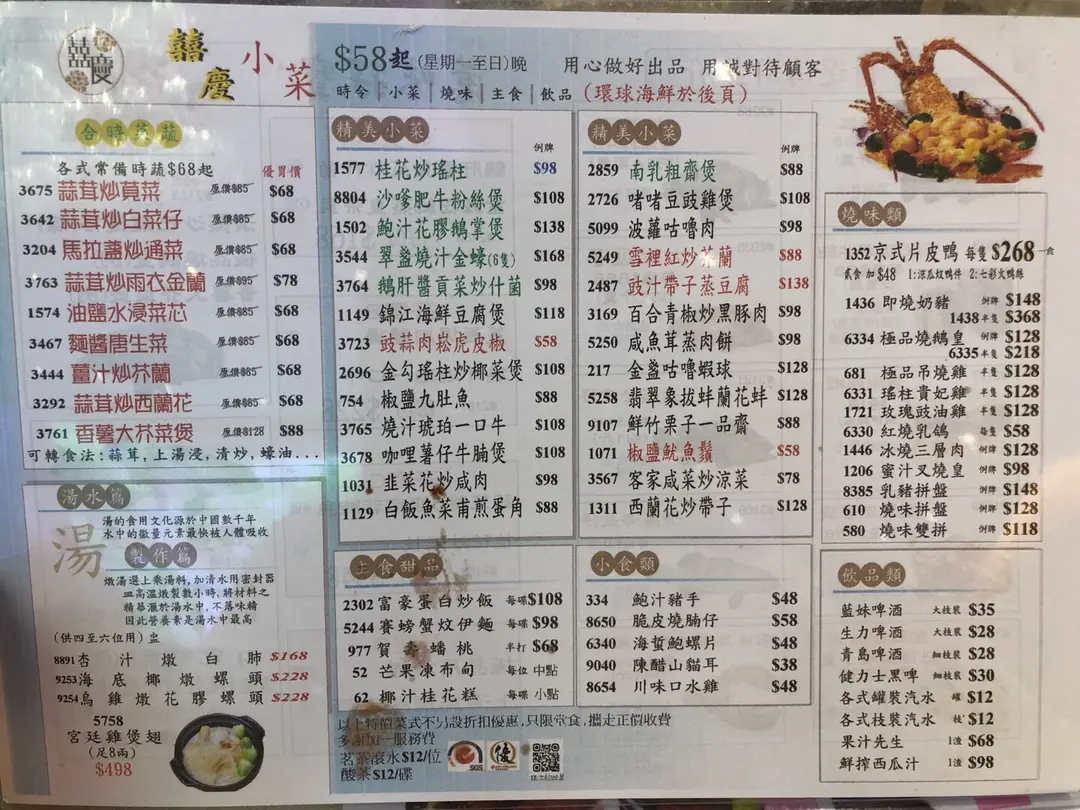 囍慶
囍慶小菜
$58起(星期一至日)晚 用心做好出品 用誠對待顧客
時令|小菜|燒味|主食|飲品 (環球海鮮於後頁)
合時菜蔬
各式常備時蔬$68起 優買價
3675 蒜茸炒莧菜 原價$85 $68
3642 蒜茸炒白菜仔 原價$85 $68
3204 馬拉盞炒通菜 原價$85 $68
3763 蒜茸炒雨衣金蘭 原價$95 $78
1574 油鹽水浸菜芯 原價$85 $68
3467 麵醬唐生菜 原價$85 $68
3444 薑汁炒芥蘭 原價$85 $68
3292 蒜茸炒西蘭花 原價$85 $68
3761 香薯大芥菜煲 原價$128 $88
可轉食法:蒜茸,上湯浸,清炒,蠔油...
湯水篇
湯
湯的食用文化源於中國數千年
水中的微量元素最快被人體吸收
製作篇
燉湯選上乘湯料,加清水用密封器
皿高溫燉製數小時,將材料之
精華滙於湯水中,不落味精
因此營養素是湯水中最高
(供四至六位用) 盅
8891 杏汁燉白肺 $168
9253 海底椰燉螺頭 $228
9254 烏雞燉花膠螺頭 $228
5758
宮廷雞煲翅
(足8兩)
$498
精美小菜
例牌
1577 桂花炒瑤柱 $98
8804 沙嗲肥牛粉絲煲 $108
1502 鮑汁花膠鵝掌煲 $138
3544 翠盞燒汁金蠔(6隻) $168
3764 鵝肝醬貢菜炒什菌 $98
1149 錦江海鮮豆腐煲 $118
3723 豉蒜肉崧虎皮椒 $58
2696 金勾瑤柱炒椰菜煲 $108
754 椒鹽九肚魚 $88
3765 燒汁琥珀一口牛 $108
3678 咖哩薯仔牛腩煲 $108
1031 韭菜花炒咸肉 $98
1129 白飯魚菜甫煎蛋角 $88
精美小菜
例牌
2859 南乳粗齋煲 $88
2726 啫啫豆豉雞煲 $108
5099 波蘿咕嚕肉 $98
5249 雪裡紅炒芥蘭 $88
2487 豉汁帶子蒸豆腐 $138
3169 百合青椒炒黑豚肉 $98
5250 咸魚茸蒸肉餅 $98
217 金盞咕嚕蝦球 $128
5258 翡翠象拔蚌蘭花蚌 $128
9107 鮮竹栗子一品齋 $88
1071 椒鹽魷魚鬚 $58
3567 客家咸菜炒涼菜 $78
1311 西蘭花炒帶子 $128
主食甜品
2302 富豪蛋白炒飯 每碟 $108
5244 賽螃蟹炆伊麵 每碟 $98
977 賀壽蟠桃 半打 $68
52 芒果凍布甸 每位 中點
62 椰汁桂花糕 每碟 小點
小食類
334 鮑汁豬手 $48
8650 脆皮燒腩仔 $58
6340 海蜇鮑螺片 $48
9040 陳醋山貓耳 $38
8654 川味口水雞 $48
以上特價菜式不另設折扣優惠,只限堂食,攜走正價收費
多謝加一服務費
茗茶滾水$12/位
酸菜$12/碟
SGS
優
燒味類
1352 京式片皮鴨 每隻 $268 一食
貳食加$48 1:涼瓜炆鴨件 2:七彩火鴨絲
1436 即燒奶豬 例牌 $148
1438 半隻 $368
6334 極品燒鵝皇 例牌 $128
6335 半隻 $218
681 極品吊燒雞 半隻 $128
6331 瑤柱貴妃雞 半隻 $128
1721 玫瑰豉油雞 半隻 $128
6330 紅燒乳鴿 每隻 $58
1446 冰燒三層肉 例牌 $128
1206 蜜汁叉燒皇 例牌 $98
8385 乳豬拼盤 例牌 $148
610 燒味拼盤 例牌 $128
580 燒味雙拼 例牌 $118
飲品類
藍妹啤酒 大枝裝 $35
生力啤酒 大枝裝 $28
青島啤酒 細枝裝 $28
健力士黑啤 細枝裝 $30
各式罐裝汽水 罐 $12
各式枝裝汽水 枝 $12
果汁先生 1渣 $68
鮮搾西瓜汁 1渣 $98